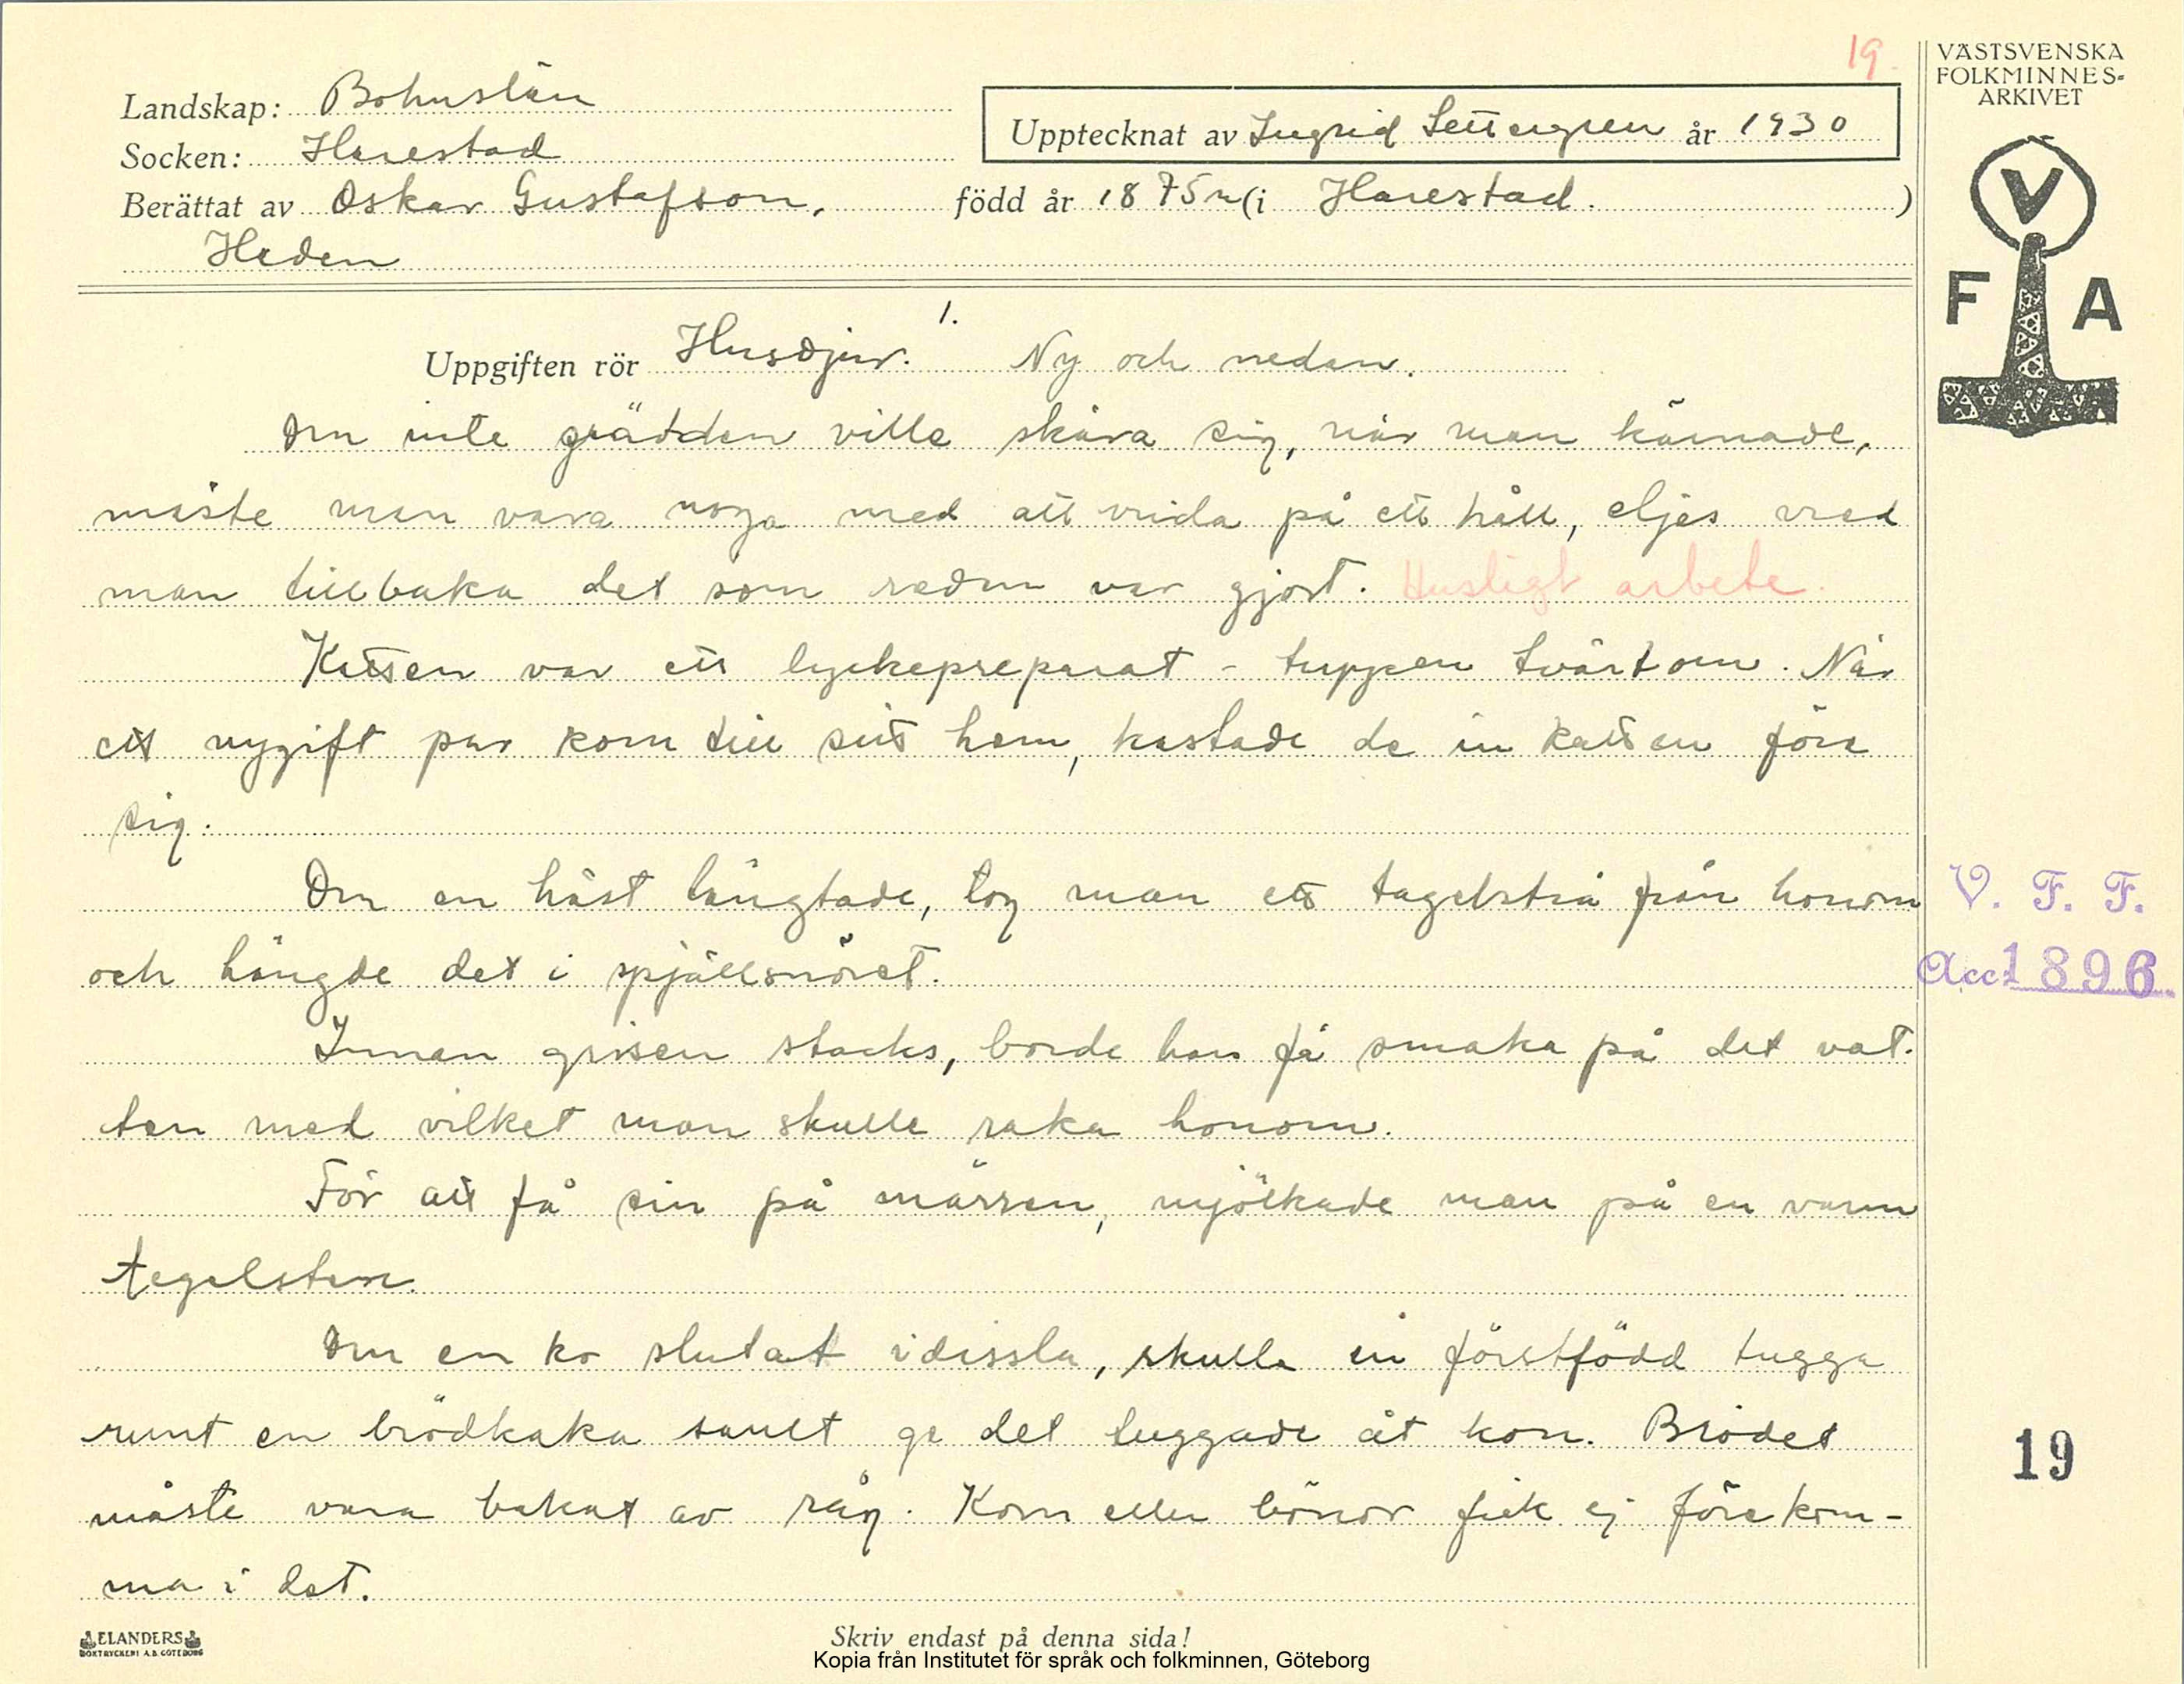 19.
VÄSTSVENSKA
FOLKMINNES-
ARKIVET
Landskap: Bohuslän
Upptecknat av Ingrid Settergren år 1930
Socken: Harestad
Berättat av Oskar Gustafson, född år 1875 (i Harestad. )
Heden
V
F A
1.
Uppgiften rör Husdjur. Ny och nedan.
Om inte grädden ville skära sig, när man kärnade,
måste man vara noga med att vrida på ett håll, eljes vred
man tillbaka det som redan var gjort. Husligt arbete.
Katten var ett lyckepreparat - tuppen tvärtom. När
ett nygift par kom till sitt hem, kastade de in katten före
sig.
Om en häst längtade, tog man ett tagelstrå från honom
och hängde det i spjällsnöret.
V. F. F.
Acc: 1896
Innan grisen stacks, borde han få smaka på det vat-
ten med vilket man skulle raka honom.
För att få sin på märren, mjölkade man på en varm
tegelsten.
Om en ko slutat idissla, skulle en förstfödd tugga
runt en brödkaka samt ge det tuggade åt kon. Brödet
måste vara bakat av råg. Korn eller bönor fick ej förekom-
ma i det.
19
ELANDERS
BOKTRYCKERI A.B. GÖTEBORG
Skriv endast på denna sida!
Kopia från Institutet för språk och folkminnen, Göteborg